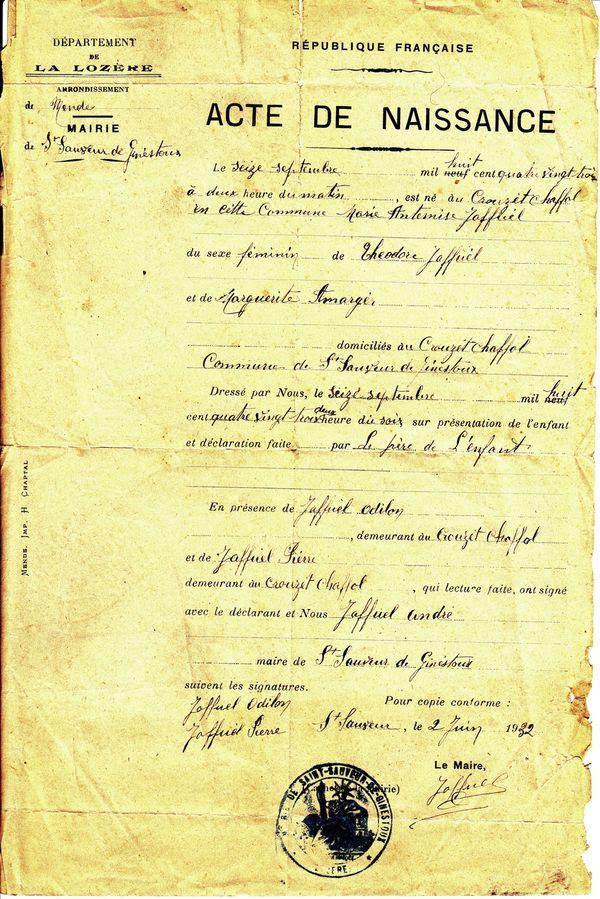 DÉPARTEMENT
DE
LA LOZÈRE
ARRONDISSEMENT
de Mende
MAIRIE
de St Sauveur de Ginestoux
RÉPUBLIQUE FRANÇAISE
ACTE DE NAISSANCE
Le seize septembre mil neuf huit cent quatre vingt trois
à deux heure du matin, est né au Crouzet Chaffol
en cette Commune Marie Antemise Jaffuel
du sexe féminin de Théodore Jaffuel
et de Marguerite Amarger
domiciliés au Crouzet Chaffol
Commune de St Sauveur de Ginestoux
Dressé par Nous, le seize septembre mil neuf huit
cent quatre vingt trois deux heure du soir sur présentation de l'enfant
et déclaration faite par le père de L'enfant
En présence de Jaffuel Odilon
, demeurant au Crouzet Chaffol
et de Jaffuel Pierre
demeurant au Crouzet Chaffol, qui lecture faite, ont signé
avec le déclarant et Nous Jaffuel André
maire de St Sauveur de Ginestoux
suivent les signatures.
Jaffuel Odilon
Jaffuel Pierre
Pour copie conforme :
St Sauveur, le 2 Juin 1932
Le Maire,
Jaffuel
MAIRIE DE SAINT-SAUVEUR-DE-GINESTOUX
MENDE, IMP. H. CHAPTAL